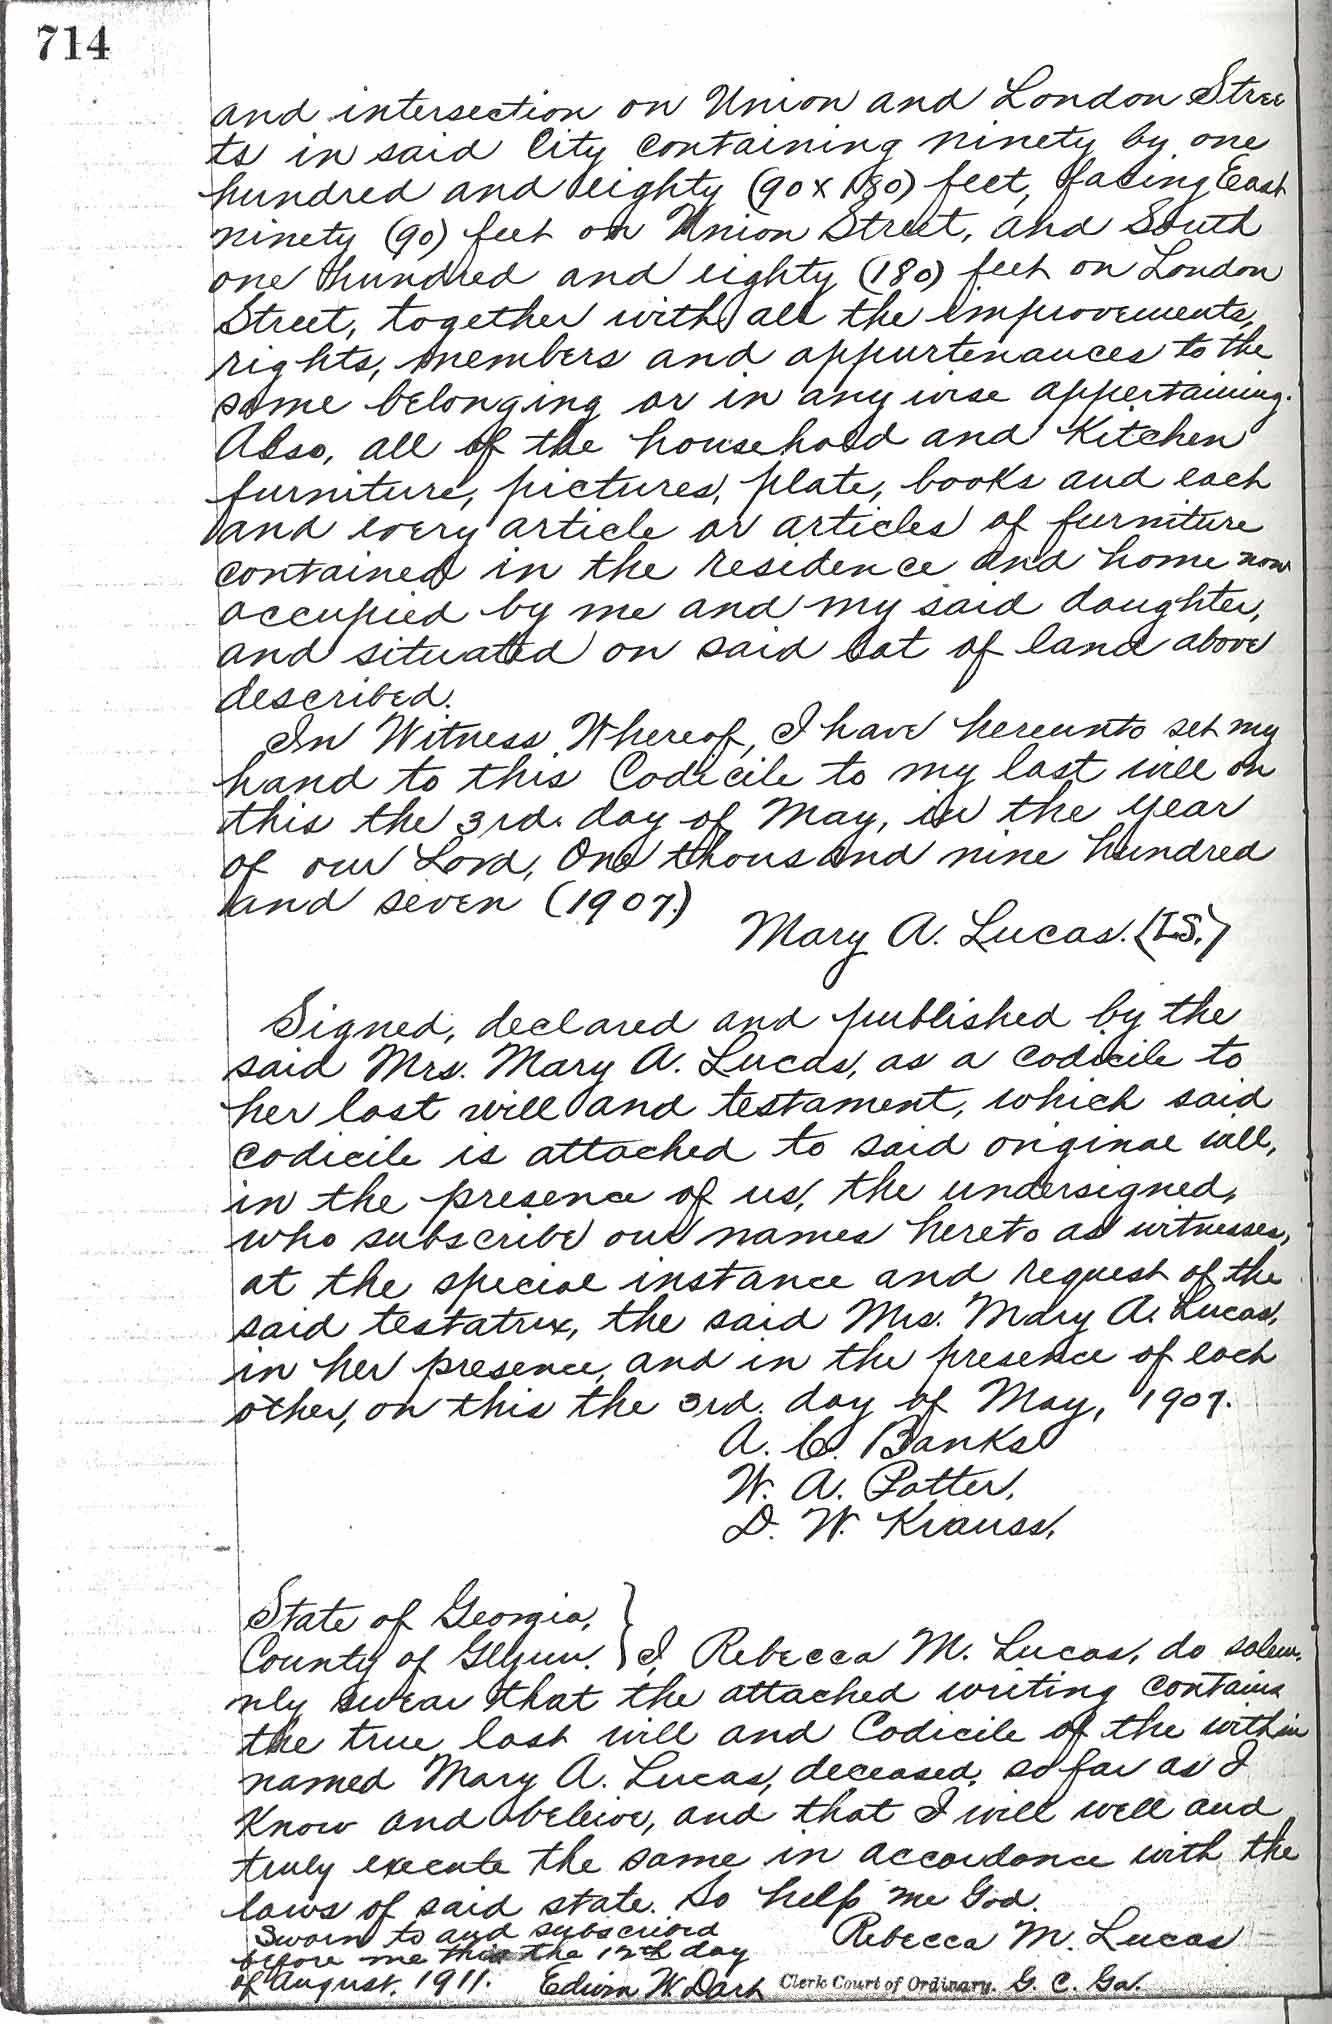 714
and intersection on Union and London Stree
ts in said City containing ninety by one
hundred and eighty (90 x 180) feet, facing East
ninety (90) feet on Union Street, and South
one hundred and eighty (180) feet on London
Street, together with all the improvements,
rights, members and appurtenances to the
same belonging or in any wise appertaining.
Also, all of the household and Kitchen
furniture, pictures, plate, books and each
and every article or articles of furniture
contained in the residence and home now
occupied by me and my said daughter,
and situated on said lot of land above
described.
In Witness Whereof, I have hereunto set my
hand to this Codicile to my last will on
this the 3rd. day of May, in the year
of our Lord, One thousand nine hundred
and seven (1907.)
Mary A. Lucas. (L.S.)
Signed, declared and published by the
said Mrs. Mary A. Lucas, as a codicile to
her last will and testament, which said
codicile is attached to said original will,
in the presence of us, the undersigned,
who subscribe our names hereto as witnesses,
at the special instance and request of the
said testatrix, the said Mrs. Mary A. Lucas,
in her presence, and in the presence of each
other, on this the 3rd. day of May, 1907.
A. C. Banks
W. A. Potter.
D. W. Krauss.
State of Georgia, }
County of Glynn. } I, Rebecca M. Lucas, do solem-
nly swear that the attached writing contains
the true last will and Codicile of the within
named Mary A. Lucas, deceased, so far as I
Know and beleive, and that I will well and
truly execute the same in accordance with the
laws of said state. So help me God.
Sworn to and subscribed Rebecca M. Lucas
before me this the 12th day
of August, 1911. Edwin W. Dart Clerk Court of Ordinary. G. C. Ga.